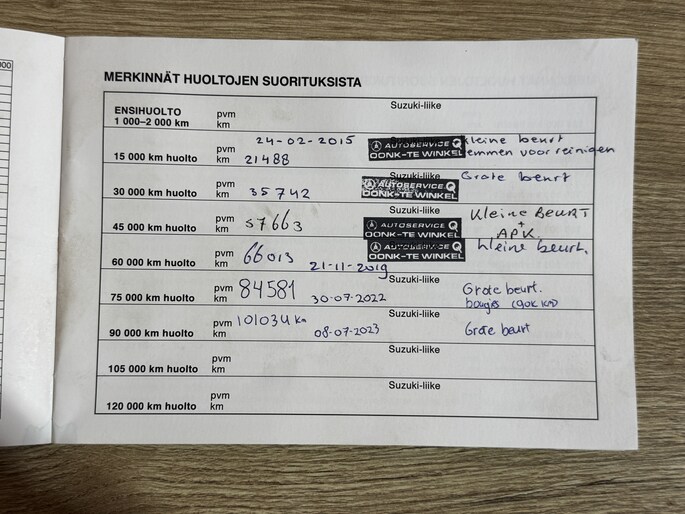 000
MERKINNÄT HUOLTOJEN SUORITUKSISTA
ENSIHUOLTO pvm Suzuki-liike
1 000–2 000 km km
24-02-2015 kleine beurt
15 000 km huolto 21488 AUTOSERVICE OONK-TE WINKEL remmen voor reinigen
pvm Suzuki-liike Grote beurt
30 000 km huolto km 35742 AUTOSERVICE OONK-TE WINKEL
pvm 57663 Suzuki-liike Kleine BEURT
+
45 000 km huolto km AUTOSERVICE OONK-TE WINKEL APK
pvm 66013 AUTOSERVICE kleine beurt.
60 000 km huolto km 21-11-2019 OONK-TE WINKEL
pvm 84581 Suzuki-liike Grote beurt.
75 000 km huolto km 30-07-2022 bougies (90K KM)
pvm 101034 km Suzuki-liike
90 000 km huolto km 08-07-2023 Grote beurt
pvm Suzuki-liike
105 000 km huolto km
pvm Suzuki-liike
120 000 km huolto km